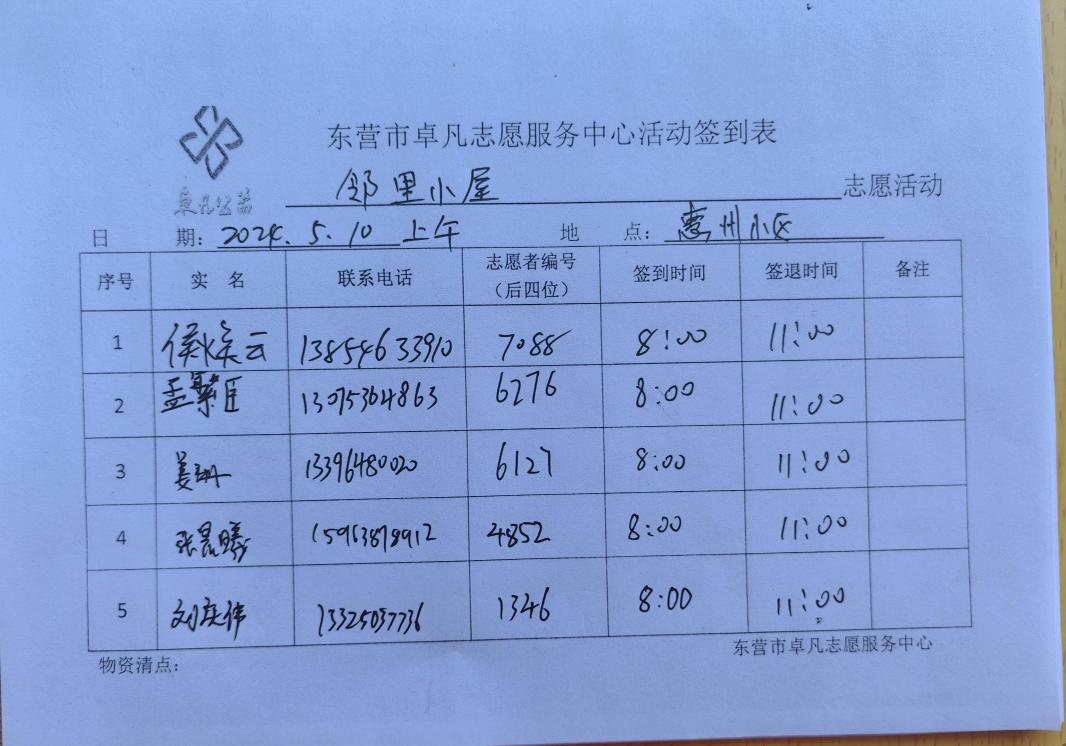 东营市卓凡志愿服务中心活动签到表
卓凡公益
邻里小屋 志愿活动
日 期：2024.5.10 上午 地 点：惠州小区
序号 实 名 联系电话 志愿者编号（后四位） 签到时间 签退时间 备注
1 侯焕云 13854633910 7088 8:00 11:00
2 孟繁臣 13075364863 6276 8:00 11:00
3 姜琳 13396480020 6127 8:00 11:00
4 张晨曦 15963878912 4852 8:00 11:00
5 刘庆伟 13325037736 1346 8:00 11:00
物资清点： 东营市卓凡志愿服务中心